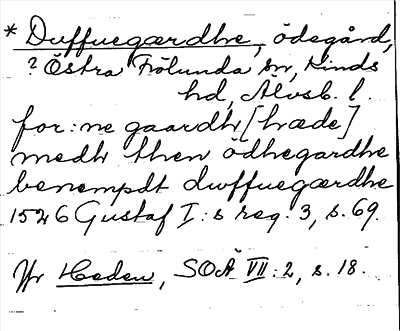 * Duffuegærdhe, ödegård,
? Östra Frölunda sn, Kinds
hd, Älvsb. l.
for:ne gaardh [hæde]
medh then ödhegardhe
benempdt duffuegærdhe
1526 Gustaf I:s reg. 3, s. 69.
Jfr Heden, SOÄ VII:2, s. 18.